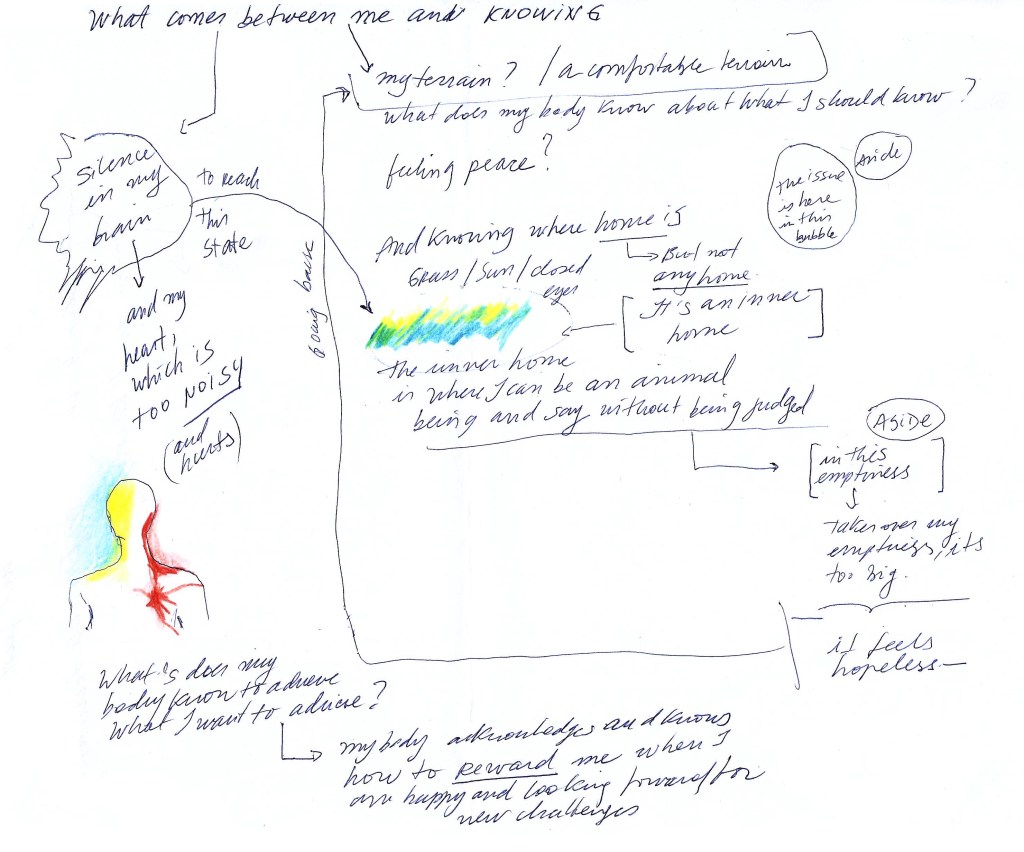 What comes between me and KNOWING
my terrain? / a comfortable terrain
what does my body know about what I should know?
feeling peace?
Aside
the issue
is here
in this
bubble
Silence
in my
brain
to reach
this
state
going back
And knowing where home is
Grass / Sun / closed
eyes
But not
any home.
It's an inner
home
and my
heart,
which is
too NOISY
(and
hurts)
the inner home
is where I can be an animal
being and say without being judged
ASIDE
in this
emptiness
takes over my
emptiness, its
too big.
it feels
hopeless—
What's does my
body know to achieve
What I want to achieve?
my body acknowledges and knows
how to REWARD me when I
am happy and looking forward for
new challenges